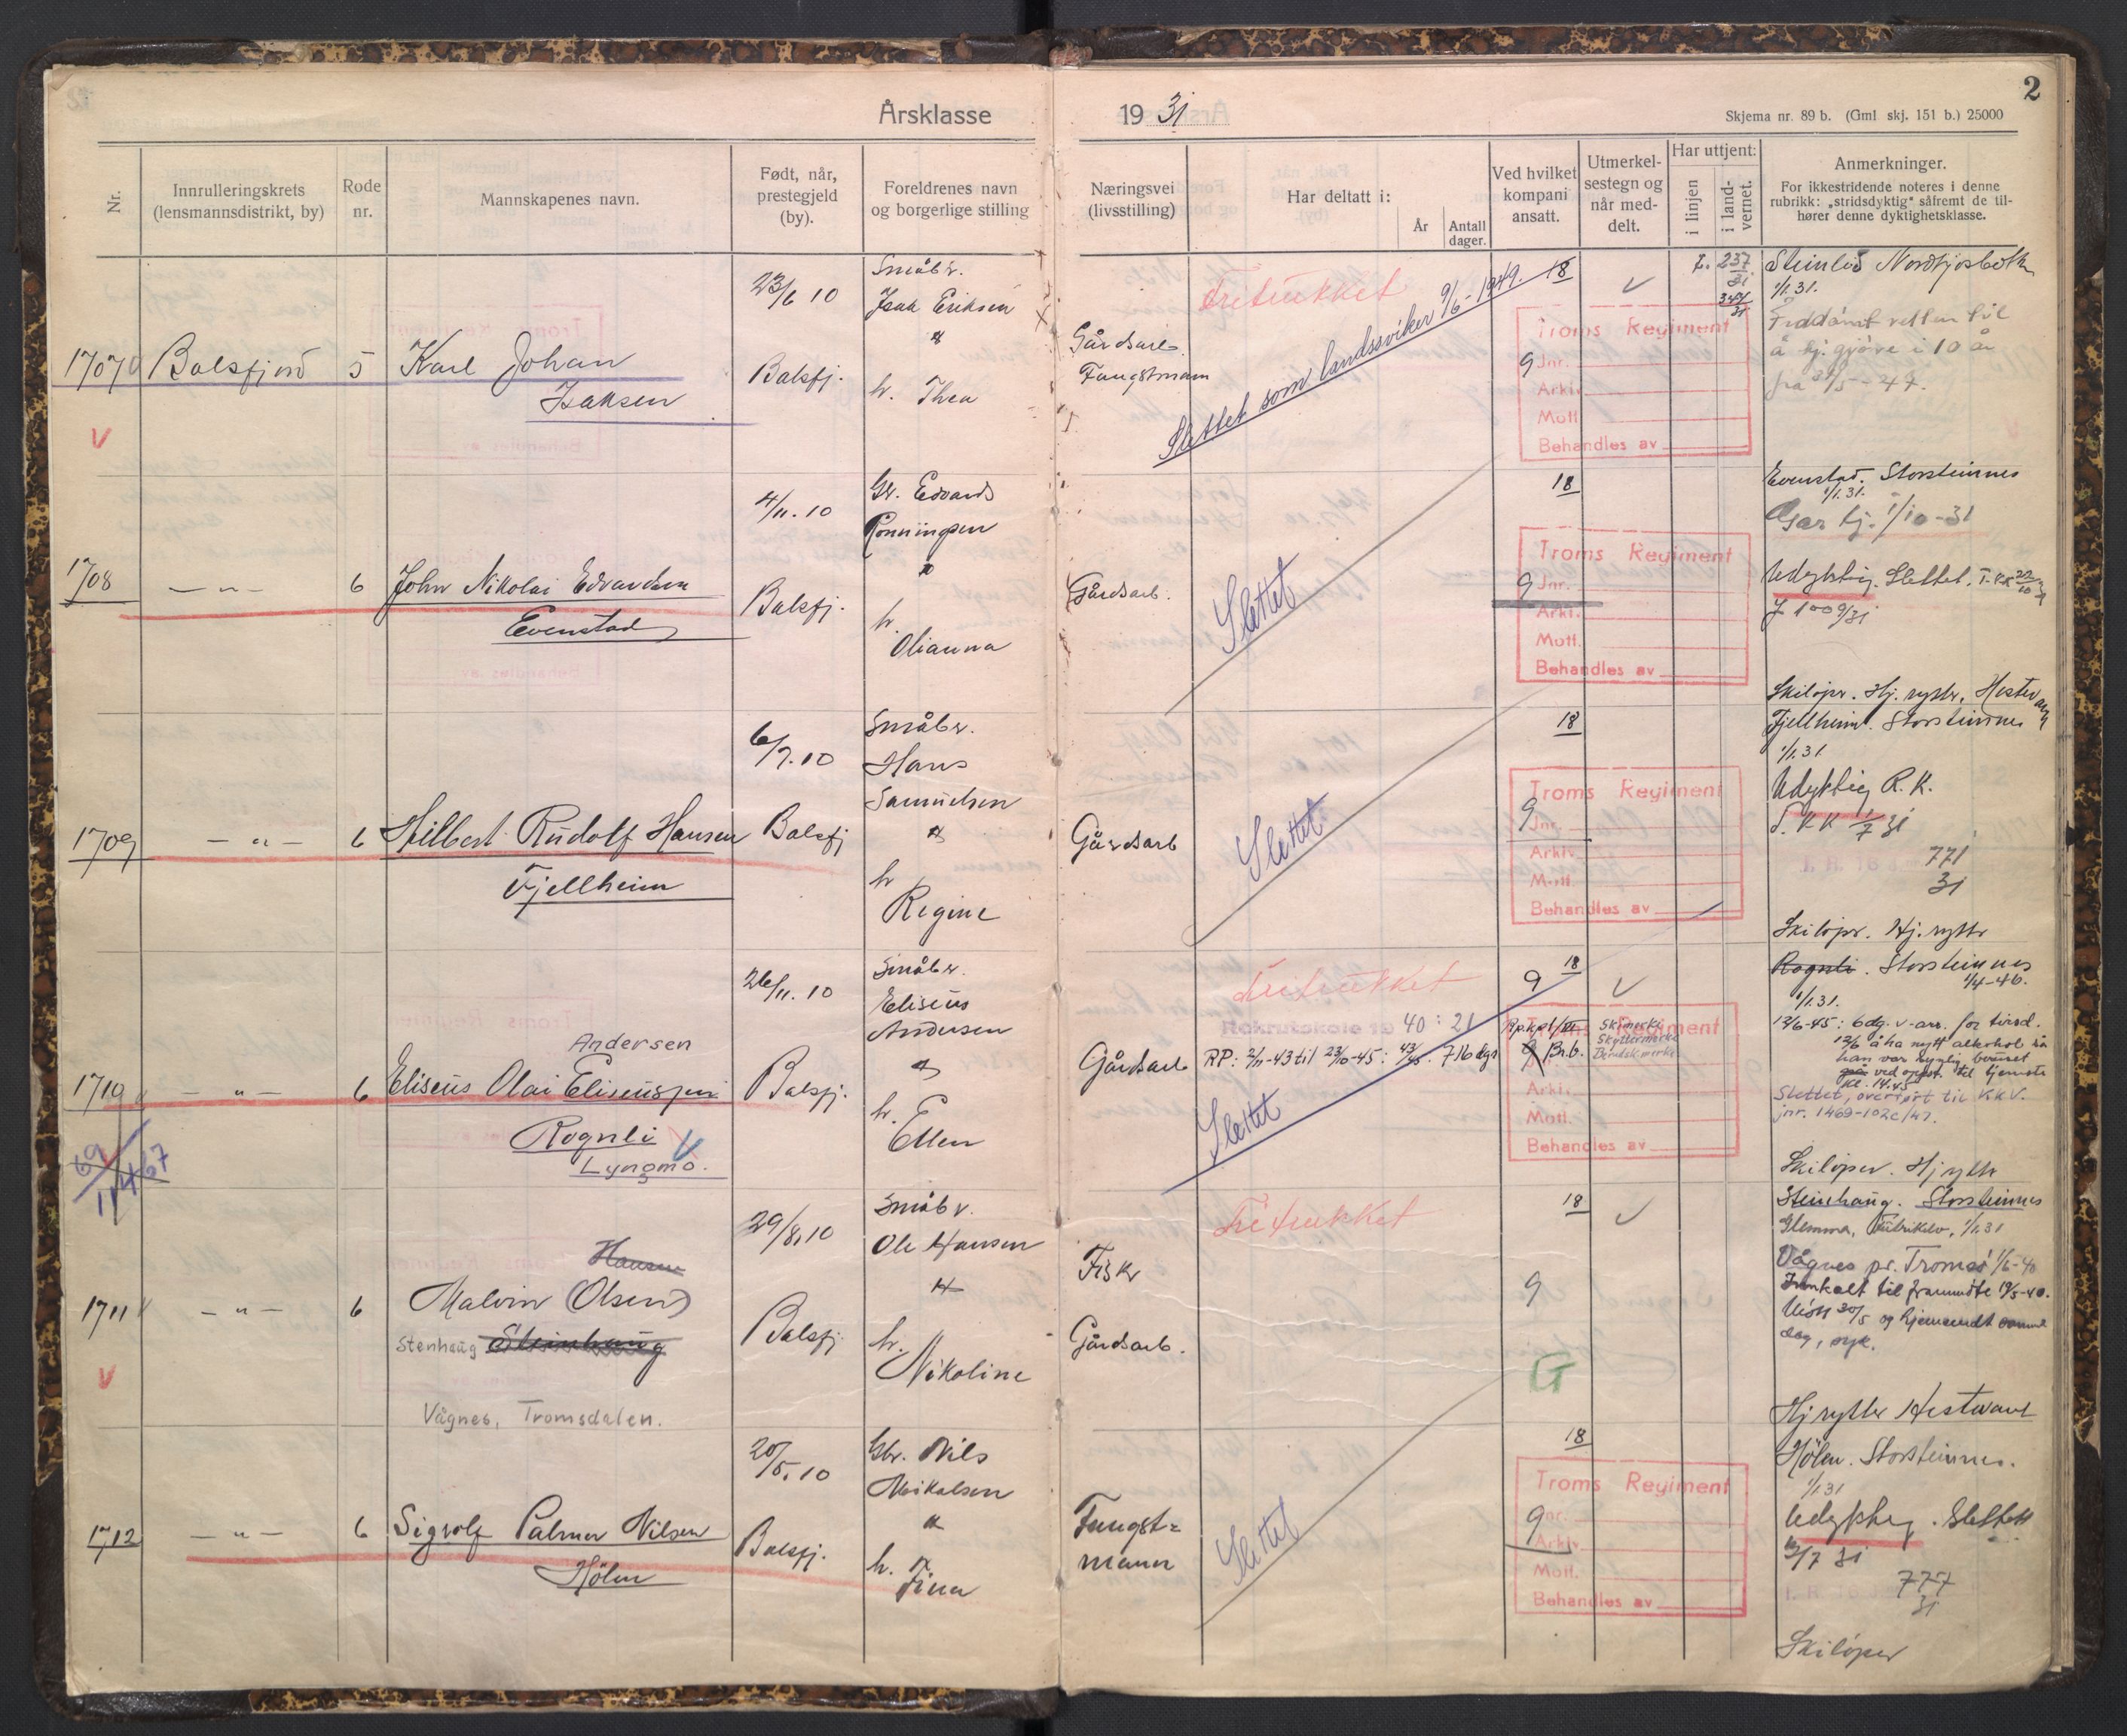 2
Årsklasse 19 31
Skjema nr. 89 b. (Gml skj. 151 b.) 25000
Nr.
Innrulleringskrets
(lensmannsdistrikt, by)
Rode
nr.
Mannskapenes navn.
Født, når,
prestegjeld
(by).
Foreldrenes navn
og borgerlige stilling
Næringsvei
(livsstilling)
Har deltatt i:
År
Antall
dager.
Ved hvilket
kompani
ansatt.
Utmerkel-
sestegn og
når med-
delt.
Har uttjent:
i linjen
i land-
vernet.
Anmerkninger.
For ikkestridende noteres i denne
rubrikk: „stridsdyktig" såfremt de til-
hører denne dyktighetsklasse.
1707
Balsfjord
5
Karl Johan
Isaksen
23/6 10
Balsfj.
Småbr.
Isak Eriksen
h. Thea
Gårdsarb.
Fangstmann
Fritrukket
Slettet som landssviker 9/6-1949.
18
9
Troms Regiment
Jnr.
Arkiv
Mott.
Behandles av
237
31
1/1.31.
å tj.gjøre i 10 år
fra 31/5-47.
1708
— „ —
6
John Nikolai Edvardsen
Evenstad
4/11.10
Balsfj.
Gbr. Edvard
Rønningen
h.
Olianna
Gårdsarb.
Slettet
18
9
Troms Regiment
Jnr.
Arkt.
Mott.
Behandles av
Evenstad. Storsteinnes
1/1.31.
Gar tj. 1/10-31
Udyktig. Slettet.
J 1009/31
Skiløper. Hj. rytter. Hestevant
1709
— „ —
6
Hilbert Rudolf Hansen
Fjellheim
6/7.10
Balsfj
Småbr.
Hans
Samuelsen
h
Regine
Gårdsarb
Slettet
18
9
Troms Regiment
Jnr.
Arkiv
Mott.
Behandles av
Fjellheim. Storsteinnes
1/1.31
Udyktig R.K.
771
31
Skiløper. Hj. rytter
1710
— „ —
6
Andersen
Eliseus Olai Eliseussen
Rognli
Lyngmo.
26/11.10
Balsfj.
Småbr.
Eliseus
Andersen
h.
Ellen
Gårdsarb
Fritrukket
Rekruttskole 19 40 : 21
RP: 2/11-43 til 23/10-45: 43/45. 716 dgr
Slettet
18
9
Br.b.
Skimerke
Skyttermerke
Troms Regiment
Arkiv
Mott.
Behandles av
Rognli. Storsteinnes
1/4-46.
1/1.31.
12/6-45: 6dg. v-arr. for tirsd.
12/6 å ha nytt alkohol så
han var synlig beruset
ved oppst. til tjeneste
Kl. 14.45
Slettet, overført til KKV.
jnr. 1469-102c/47.
Skiløper. Hj rytter
69
11467
1711
— „ —
6
Hansen
Malvin (Olsen)
Stenhaug Steinhaug
Vågnes, Tromsdalen.
29/8.10
Balsfj.
Småbr.
Ole Hansen
h.
Nikoline
Fisker
Gårdsarb.
Fritrukket
18
9
G
Steinhaug. Storsteinnes
1/1.31
Vågnes pr. Tromsø 1/6-40
Innkalt til frammøte 19/5-40.
og hjemsendt samme
dag, syk.
Hj rytter Hestevant
1712
— „ —
6
Sigvolf Palmer Nilsen
Hølen
20/5.10
Balsfj.
Gbr. Nils
Mikalsen
h.
Fina
Fangst=
mann
Slettet
18
9
Troms Regiment
Jnr.
Arkiv
Mott.
Behandles av
Hølen. Storsteinnes.
1/1 31
Udyktig. Slettet
777
31
Skiløper